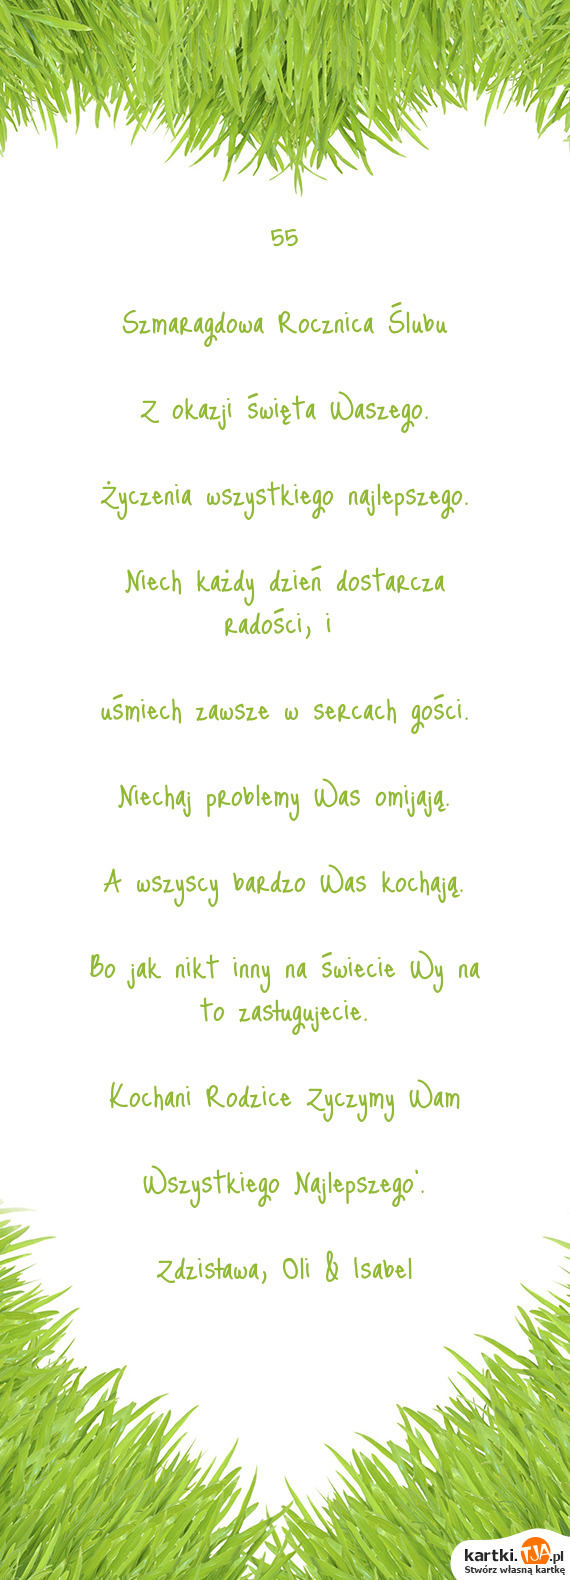 55
Szmaragdowa Rocznica Ślubu
Z okazji święta Waszego.
Życzenia wszystkiego najlepszego.
Niech każdy dzień dostarcza
radości, i
uśmiech zawsze w sercach gości.
Niechaj problemy Was omijają.
A wszyscy bardzo Was kochają.
Bo jak nikt inny na świecie Wy na
to zasługujecie.
Kochani Rodzice Zyczymy Wam
Wszystkiego Najlepszego'.
Zdzisława, Oli & Isabel
kartki.TJA.pl
Stwórz własną kartkę